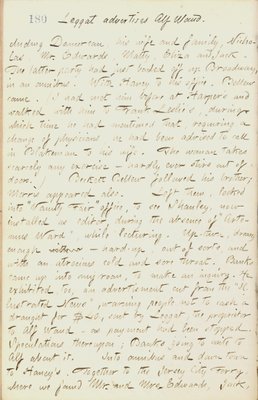 180
Leggat advertises Alf Waud.
cluding Damoreau his wife and family, Nicho-
las, Mr. Edwards, Matty, Eliza and Jack.
The latter party had just tooled up up Broadway
in an omnibus. With Haney to his office. Bellew
came. I had met him before at Harper's and
walked with him to Frank Leslie's, during
which time he had mentioned that, requiring a
change of physicians he had been advised to call
in Blakeman, to his wife. The woman takes
scarcely any exercise – hardly ever stirs out of
doors. Beckett Bellew followed his brother;
Morris appeared also. Left them, looked
into "Vanity Fair" office, to see Stanley, now
installed as editor, during the absence of "Arte-
mus Ward" while lecturing. Up-town, dreary
enough – hard-up, out of sorts and
with an atrocious cold and sore throat. Banks
came up into my room, to make an inquiry. He
exhibited, to, an advertisement cut from the "Il-
lustrated News" warning people not to cash a
draught for $20, sent by Leggat, the proprietor
to Alf Waud – as payment had been stopped.
Speculations thereupon; Banks going to write to
Alf about it. Into omnibus and down town
to Haney's. Together to the Jersey City Ferry
where we found Mr. and Mrs. Edwards, Jack,